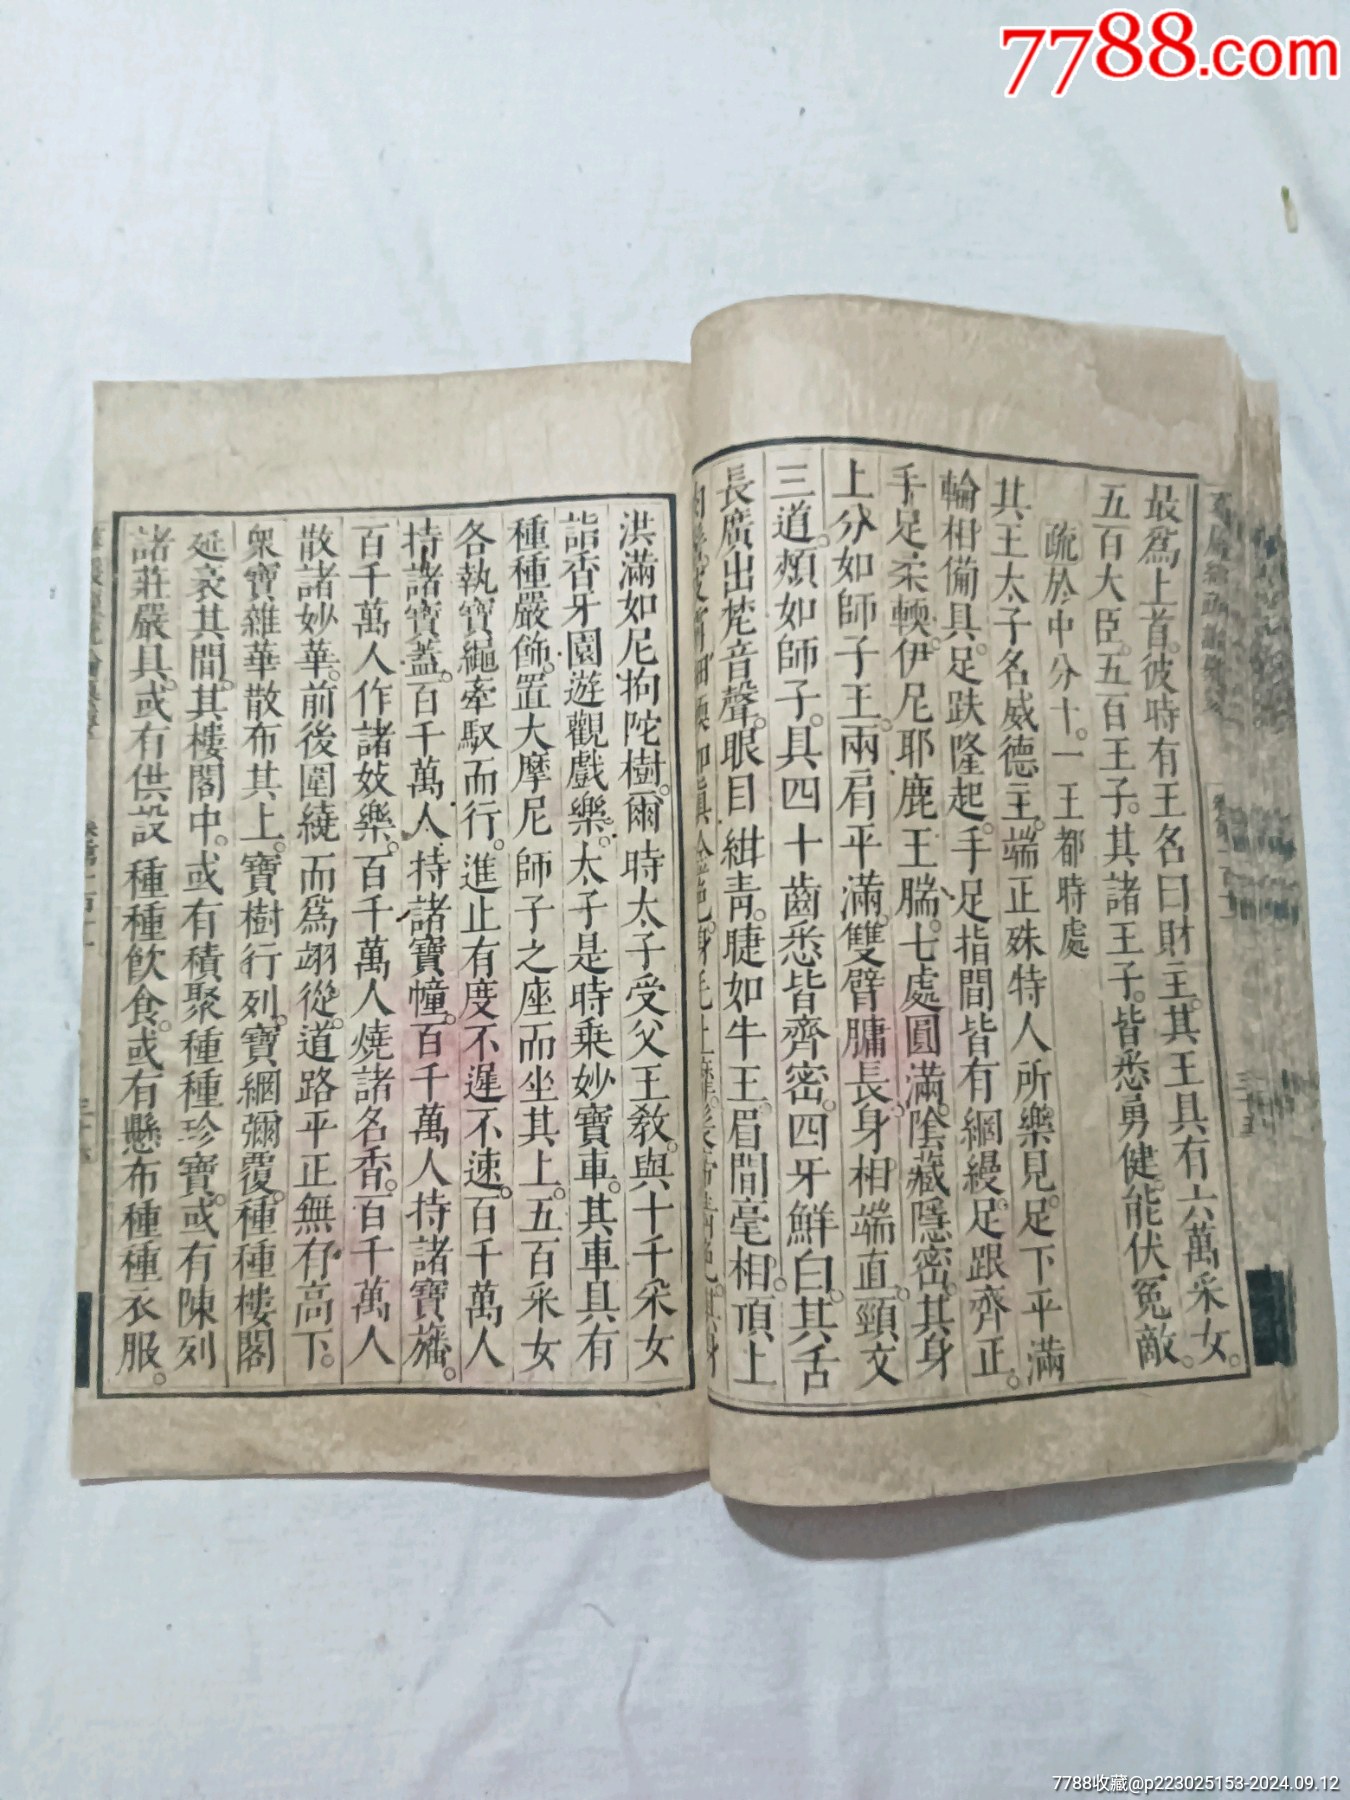 7788.com
最爲上首。彼時有王名曰財主。其王具有六萬采女。
五百大臣。五百王子。其諸王子。皆悉勇健。能伏冤敵。
疏於中分十。一王都時處
其王太子名威德主。端正殊特人所樂見。足下平滿
輪相備具。足趺隆起。手足指間皆有網縵。足跟齊正。
手足柔輭。伊尼耶鹿王腨。七處圓滿。陰藏隱密。其身
上分如師子王。兩肩平滿。雙臂𦟛長。身相端直。頸文
三道。頰如師子。具四十齒悉皆齊密。四牙鮮白。其舌
長廣出梵音聲。眼目紺青。睫如牛王。眉間毫相。頂上
洪滿如尼拘陀樹。爾時太子受父王敎。與十千采女
詣香牙園遊觀戲樂。太子是時乗妙寶車。其車具有
種種嚴飾。置大摩尼師子之座而坐其上。五百采女
各執寶繩牽馭而行。進止有度不遲不速。百千萬人
持諸寶蓋。百千萬人持諸寶幢。百千萬人持諸寶旛。
百千萬人作諸妓樂。百千萬人燒諸名香。百千萬人
散諸妙華。前後圍繞而爲翊從。道路平正無有高下。
衆寶雜華散布其上。寶樹行列。寶網彌覆。種種樓閣
延袤其間。其樓閣中。或有積聚種種珍寶。或有陳列
諸莊嚴具。或有供設種種飲食。或有懸布種種衣服。
7788收藏@p223025153-2024.09.12